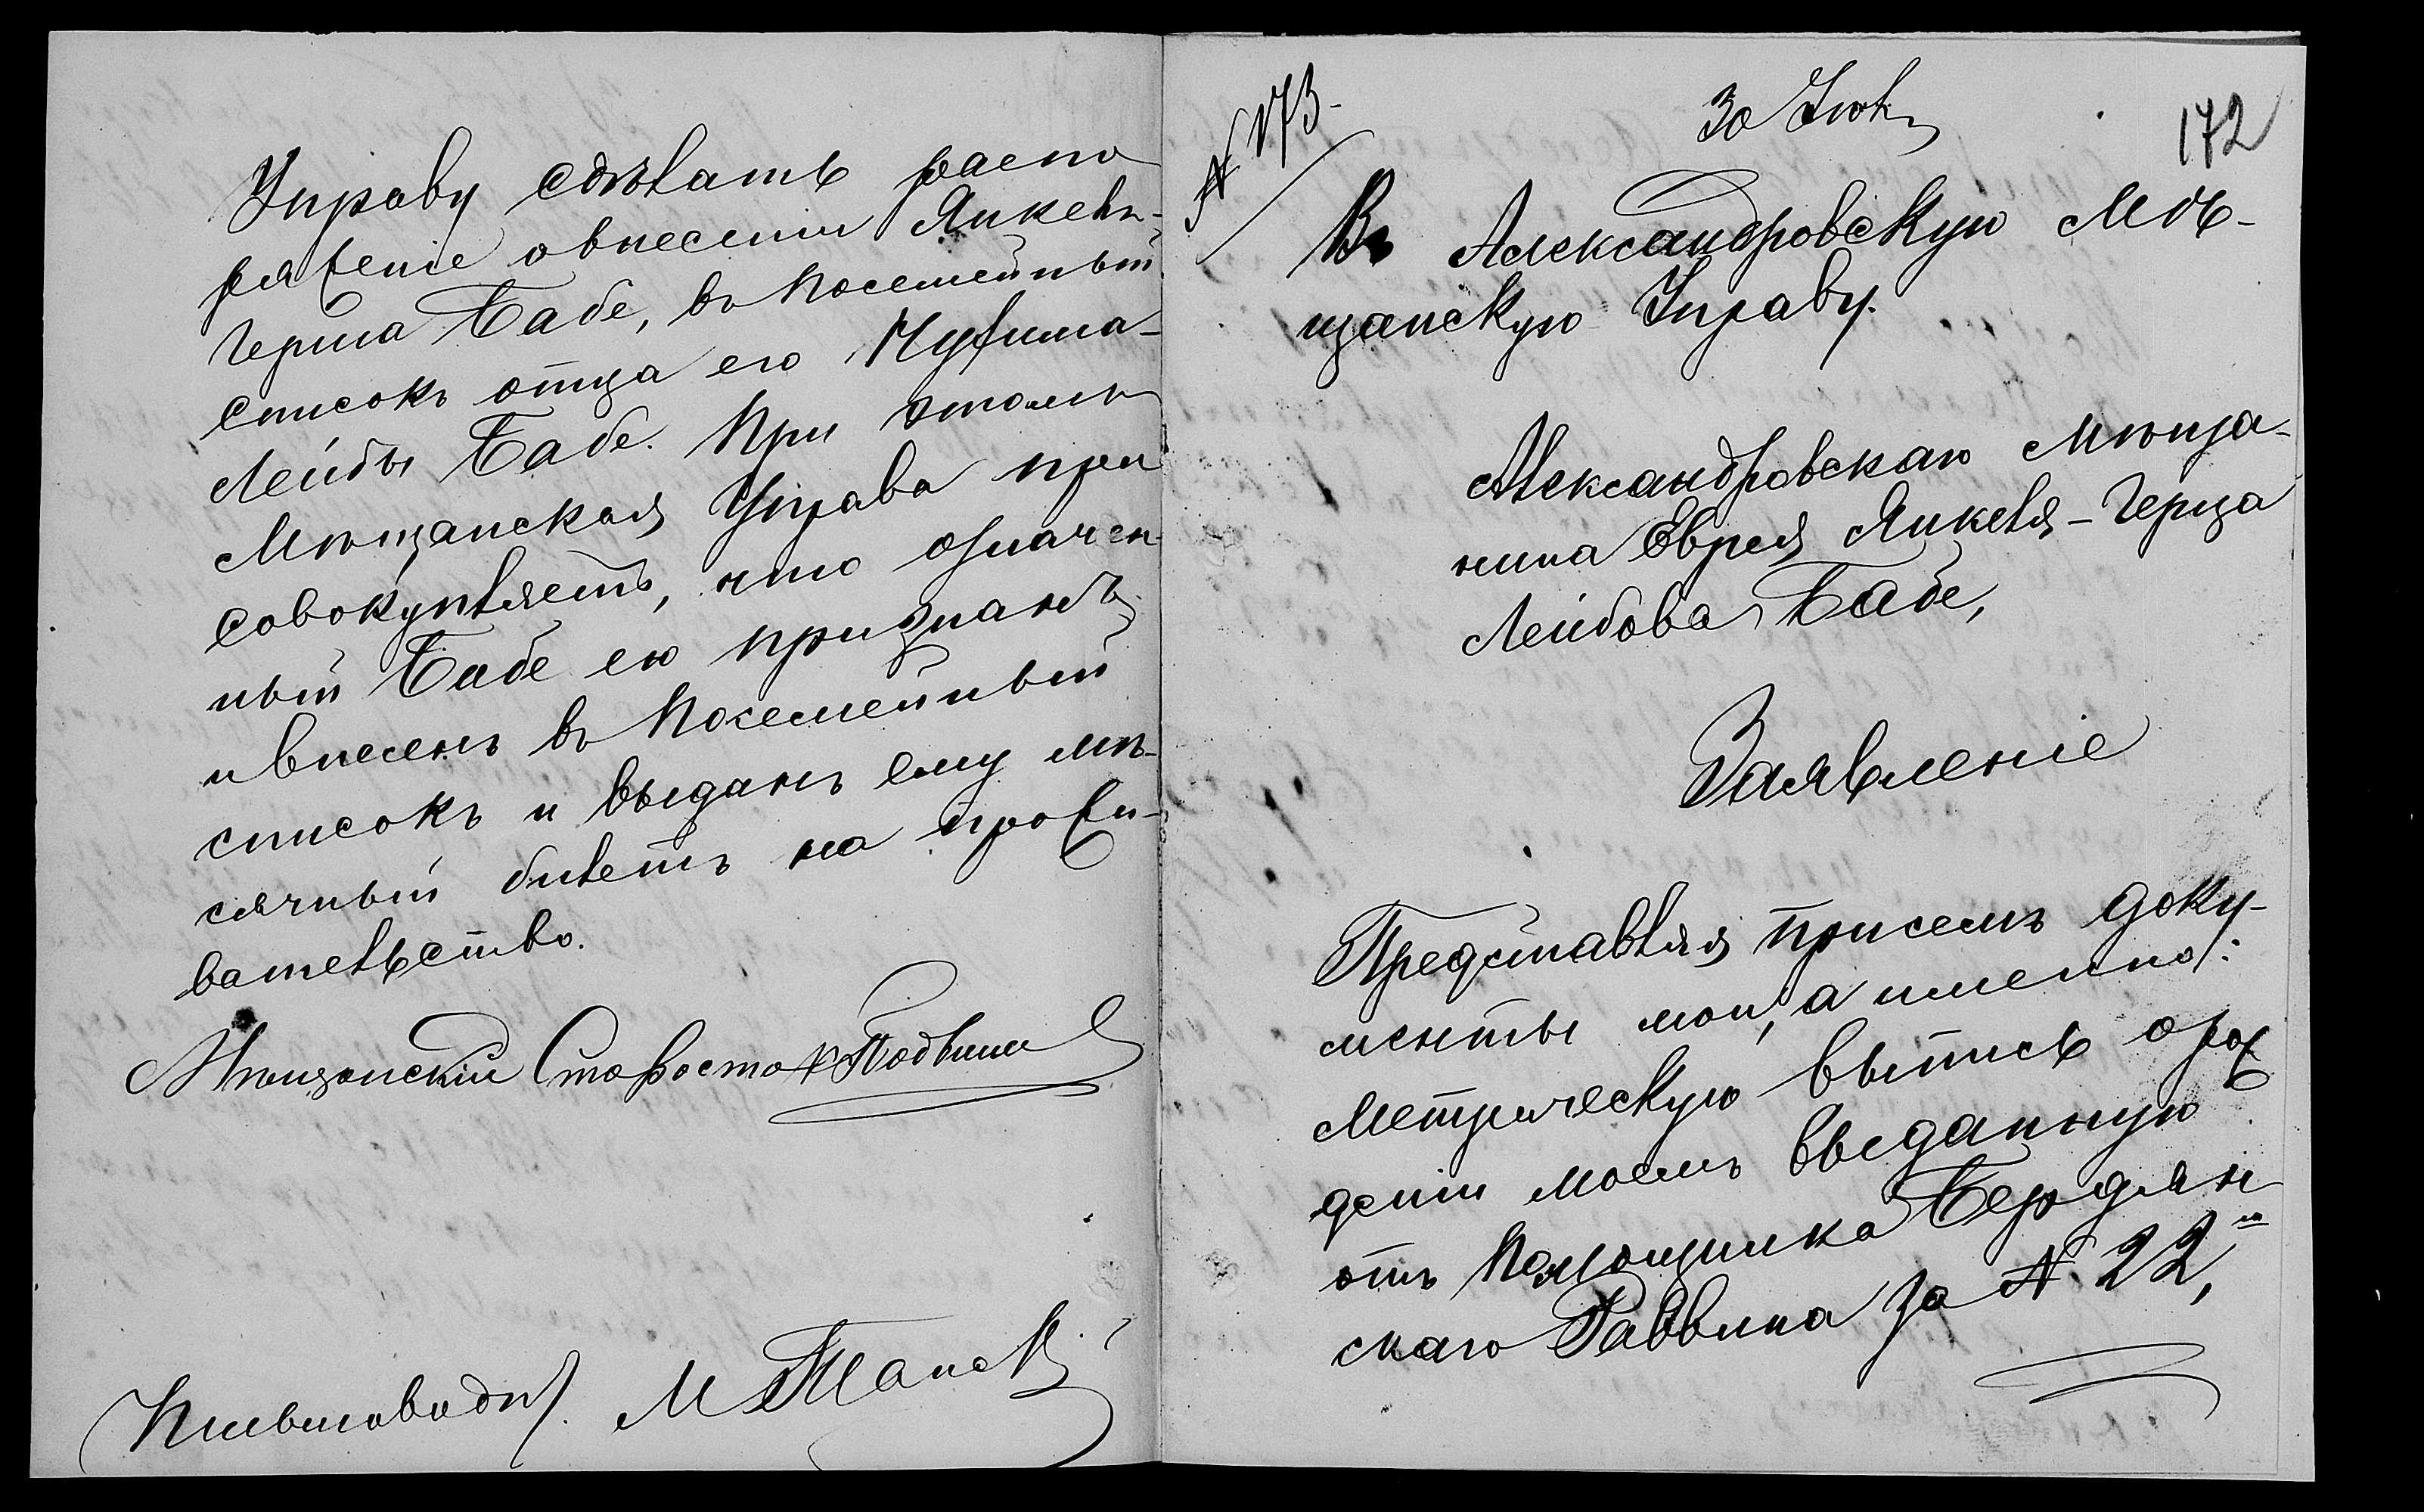 Управу сдѣлать распо
ряженіе о внесеніи Янкель-
Герша Бабе, въ посемейный
списокъ отца его Нухима-
Лейбы Бабе. При этомъ
Мѣщанская Управа при
совокупляетъ, что означен
ный Бабе ею признанъ
и внесенъ въ посемейный
списокъ и выданъ ему мѣ-
сячный билетъ на прожи-
вательство.
Мѣщанскій Староста
Письмоводи
№ 173.
30 Іюл
172
Въ Александровскую Мѣ-
щанскую Управу.
Александровскаго Мѣща-
нина Еврея Янкеля-Герша
Лейбова Бабе,
Заявленіе
Представляя присемъ доку-
менты мои, а именно:
Метрическую выпись о рож
деніи моемъ выданную
отъ Помощника Бердян
скаго Раввина за № 22,